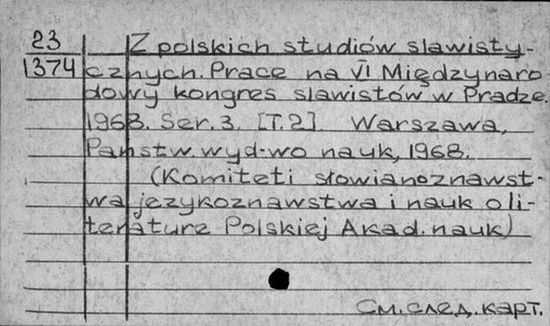 23
1374
Z polskich studiów slawisty-
cznych. Prace na VI Międzynaro
dowy kongres slawistów w Pradze.
1968. Ser. 3. [T. 2]. Warszawa,
Państw. wyd-wo nauk, 1968.
(Komiteti słowianoznawst-
wa językoznawstwa i nauk o li-
teraturze Polskiej Akad. nauk)
См. след. карт.